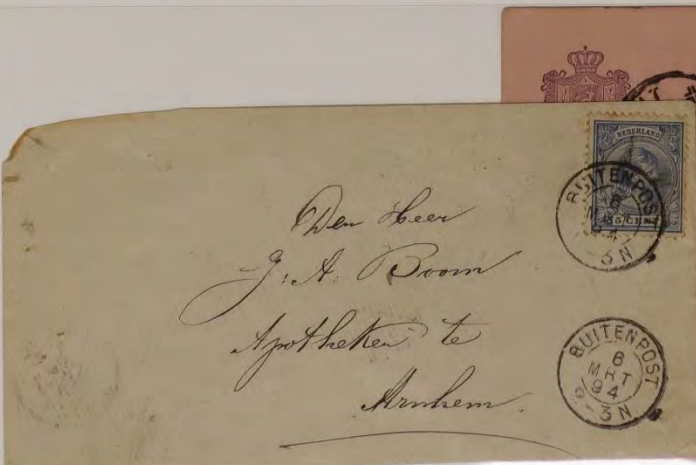 NEDERLAND
5 CENT
BUITENPOST
6
MRT
94
3 N
Den Heer
J: A: Boom
Apotheker te
Arnhem.
BUITENPOST
6
MRT
94
9-3N